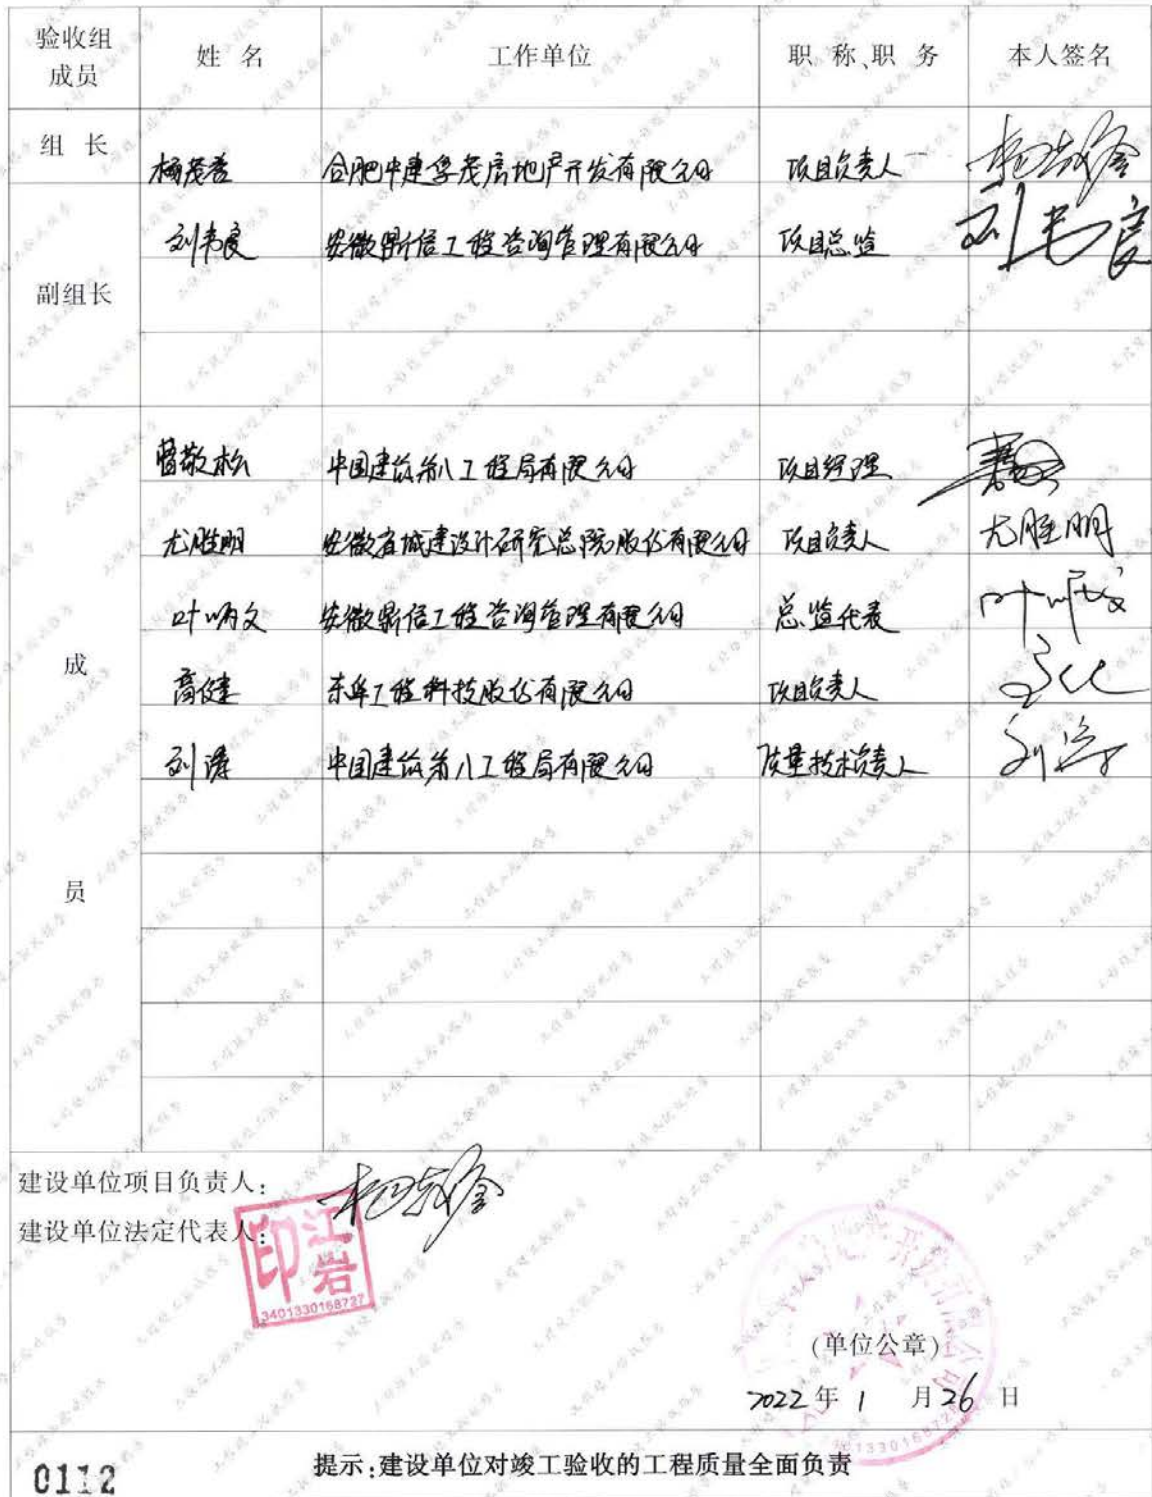 验收组成员 姓名 工作单位 职称、职务 本人签名
组长 杨茂 合肥中建孚茂房地产开发有限公司 项目负责人
刘韦良 安徽鼎信工程咨询管理有限公司 项目总监 刘韦良
副组长
敬松 中国建筑第八工程局有限公司 项目经理
尤胜明 安徽省城建设计研究总院股份有限公司 项目负责人 尤胜明
叶炳文 安徽鼎信工程咨询管理有限公司 总监代表 叶炳文
成 高健 东华工程科技股份有限公司 项目负责人
刘涛 中国建筑第八工程局有限公司 质量技术负责人 刘涛
员
建设单位项目负责人:
建设单位法定代表人:
江岩印
3401330168727
(单位公章)
2022年1月26日
0112
提示:建设单位对竣工验收的工程质量全面负责